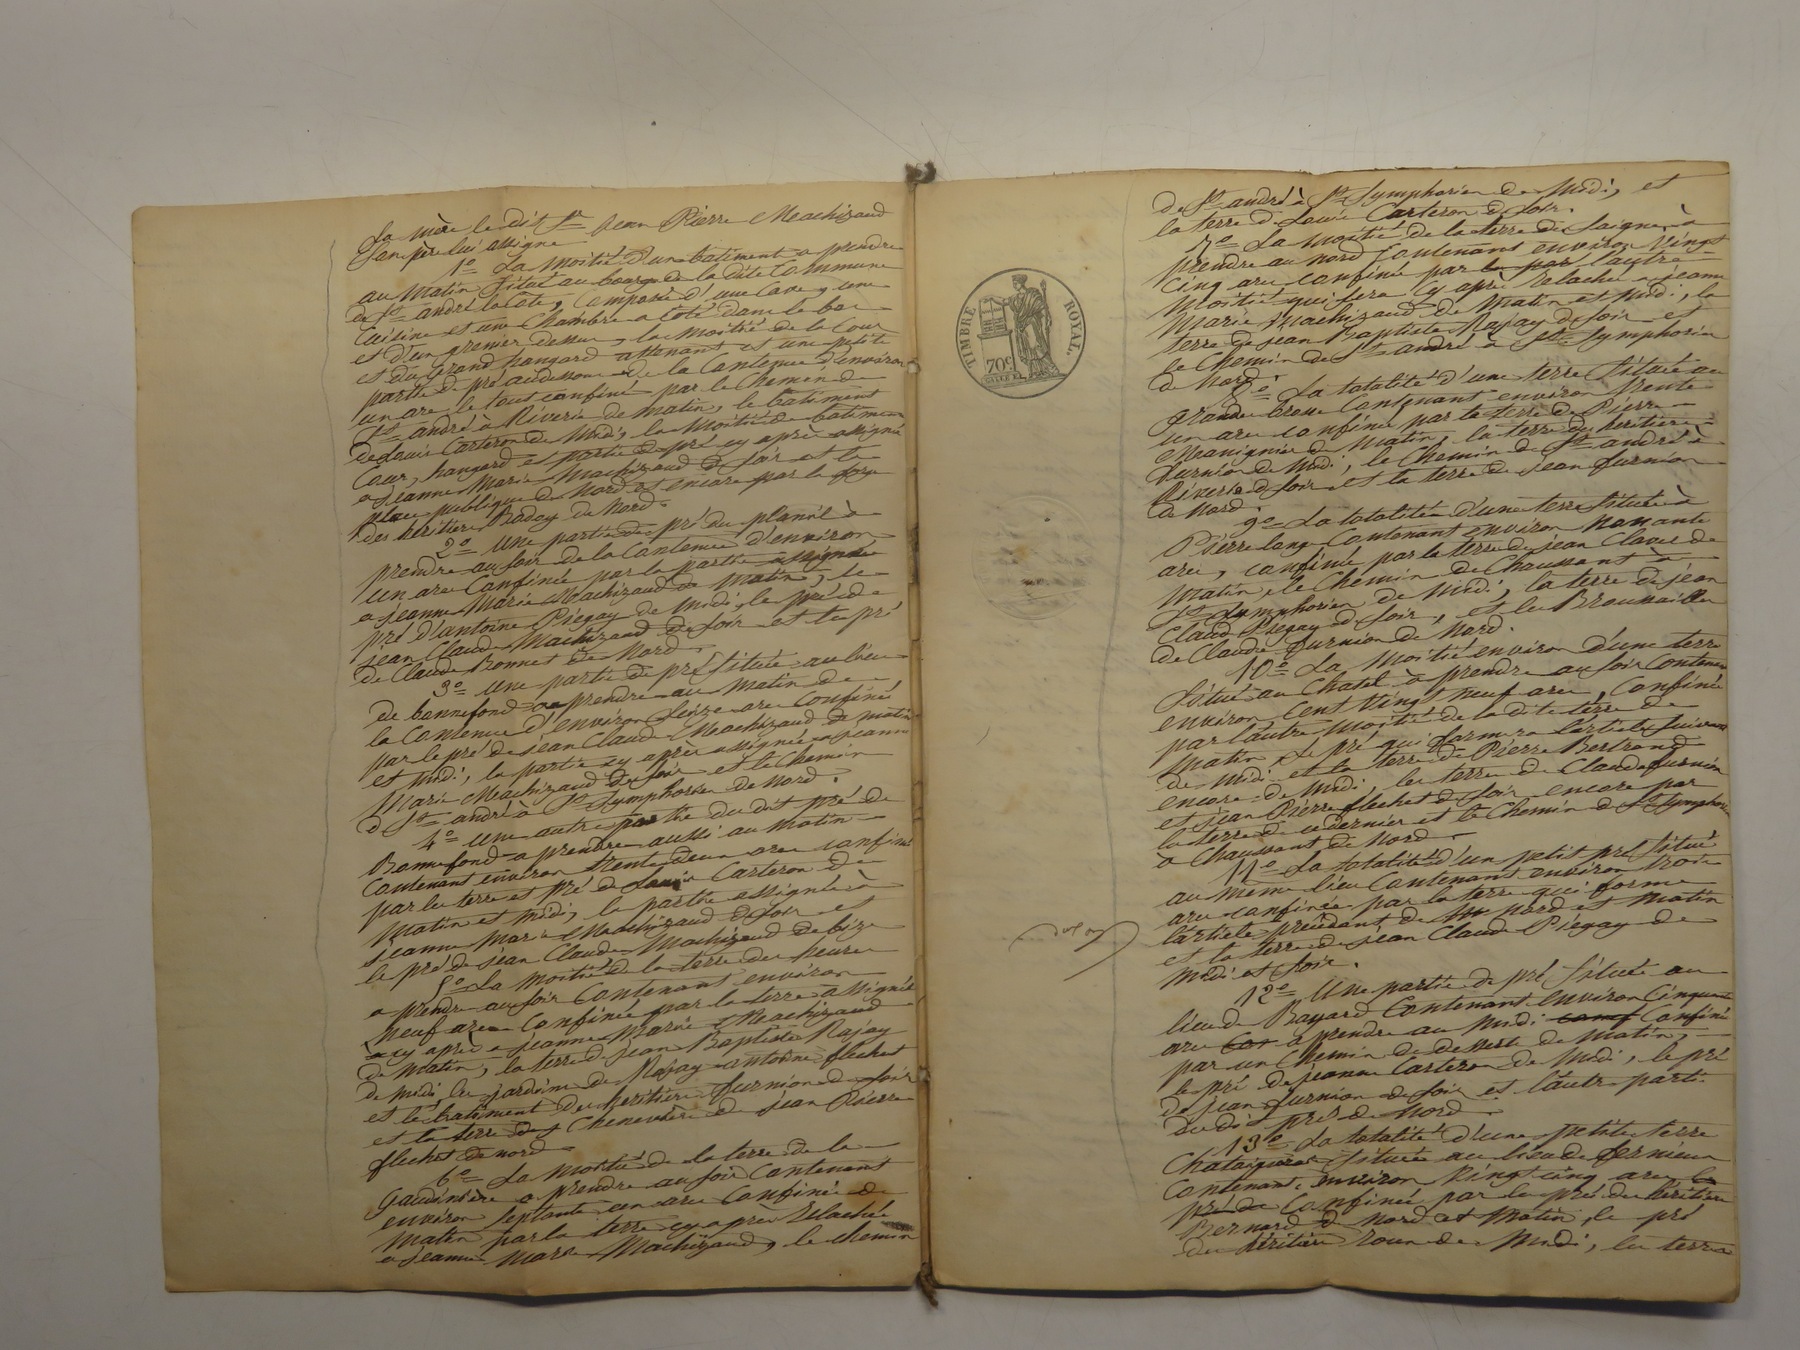 La mère le dit Sr Jean Pierre Machizaud
son père lui assigne
1o La moitié d'un batiment a prendre
au matin situé au bourg de la dite Commune
de St andré la Côte, Composée d'une Cave, une
Cuisine et une Chambre a Coté dans le bas
et d'un grenier dessus, la moitié de la Cour
et du grand hangard attenant et une petite
partie de pré audessous de la Contenue d'environ
un are le tout confiné par le Chemin de
St andré à Riverie de matin, le batiment
de Louis Carteron de Midi, la Moitié de batiment
Cour, hangard et partie de pré cy après assigné
a Jeanne Marie Machizaud de soir et la
place publique de Nord et encore par le
des héritiers Badoy de Nord.
2o Une partie de pré du planil à
prendre au soir de la Contenue d'environ
un are Confinée par la partie assignée
a Jeanne Marie Machizaud de matin, le
pré d'antoine Piegay de Midi, le pré de
jean Claude Machizaud de soir et le pré
de Claude Bonnet de Nord.
3o Une partie de pré située au lieu
de bonnefond a prendre au matin de
la Contenue d'environ seize ares Confinée
par le pré de jean Claude Machizaud de matin
et midi, la partie cy après assignée a jeanne
Marie Machizaud de soir et le Chemin
de St andré à St Symphorien de nord.
4o Une autre partie du dit pré de
Bonnefond a prendre aussi au matin
Contenant environ trente deux ares confiné
par les terre et pré de Louis Carteron de
matin et midi, la partie assignée à
jeanne Marie Machizaud de soir et
le pré de jean Claude Machizaud de bize
5o La moitié de la terre des
a prendre au soir Contenant environ
neuf ares Confinée par la terre assignée
cy après a jeanne Marie Machizaud
de matin, la terre de jean Baptiste Rajay
de midi, les jardins de Rajay antoine flechet
et le batiment des héritiers furnion de soir
et la terre Cheneviere de jean Pierre
flechet de nord
6o La moitié de la terre de la
a prendre au soir Contenant
environ septante un are Confinée de
matin par la terre cy après relachée
a jeanne Marie Machizaud, le chemin
de St andré à St Symphorien de Midi, et
la terre de Louis Carteron de soir.
7o La moitié de la terre du Saigne à
prendre au nord Contenant environ vingt
cinq ares confinée par la par l'autre
moitié qui sera cy après relachée a jeanne
Marie Machizaud de matin et midi, la
terre de jean Baptiste Rajay de soir et
le Chemin de St andré à St Symphorien
de Nord.
8o La totalité d'une terre située au
grande Contenant environ trente
un ares confinée par la terre de Pierre
de matin, la terre des héritiers
furnion de Midi, le Chemin de St andré à
Riverie de soir et la terre de jean furnion
de Nord.
9o La totalité d'une terre située à
Pierre lange Contenant environ nonante
ares, confinée par la terre de jean Clavel de
matin, le Chemin de Chaussant à
St Symphorien de Midi, la terre de jean
Claude Piegay de soir, et les Broussailles
de Claude furnion de Nord.
10o La moitié environ d'une terre
située au Chatel a prendre au soir Contenant
environ Cent vingt neuf ares, Confinée
par l'autre moitié de la dite terre de
matin, le pré qui formera l'article suivant
de midi et la terre de Pierre Bertrand
encore de midi les terres de Claude furnion
et jean Pierre flechet de soir encore par
la terre de ce dernier et le Chemin de St Symphorien
a Chaussant de Nord.
11o La totalité d'un petit pré situé
au même lieu Contenant environ trois
ares confinée par la terre qui forme
l'article précédant de nord et matin
et la terre de jean Claude Piegay de
midi et soir.
12o Une partie de pré située au
lieu de Bayard Contenant environ Cinquante
ares a prendre au midi Confiné
par un Chemin de desserte de matin,
le pré de jeanne Carteron de Midi, le pré
de jean furnion de soir et l'autre partie
du dit pré de Nord
13o La totalité d'une petite terre
Chataigneraie située au lieu de
Contenant environ vingt cinq ares
Confinée par le pré des héritiers
Bernard de nord et matin, le pré
des héritiers de Midi, les terres
TIMBRE ROYAL.
70c